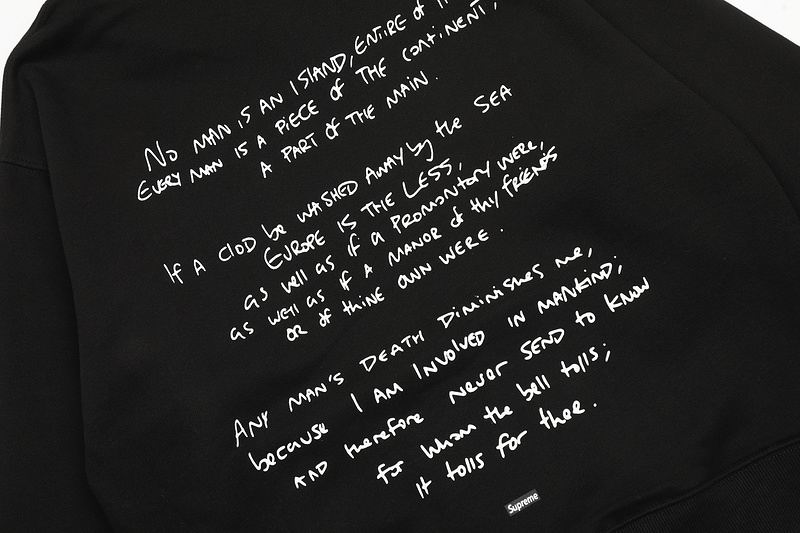 No MAN is AN ISLAND, ENTIRE of
EVERY MAN IS A PIECE of THE CONTINENT,
A PART of THE MAIN.
If A CLOD be WASHED AWAY by the SEA
EUROPE IS THE LESS,
as well as if a PROMONTORY WERE,
as well as if a MANOR of thy FRIENDS
OR of thine OWN WERE.
ANY MAN'S DEATH DIMINISHES me,
because I AM INVOLVED IN MANKIND;
AND therefore never SEND to KNOW
for whom the bell tolls;
It tolls for thee.
Supreme